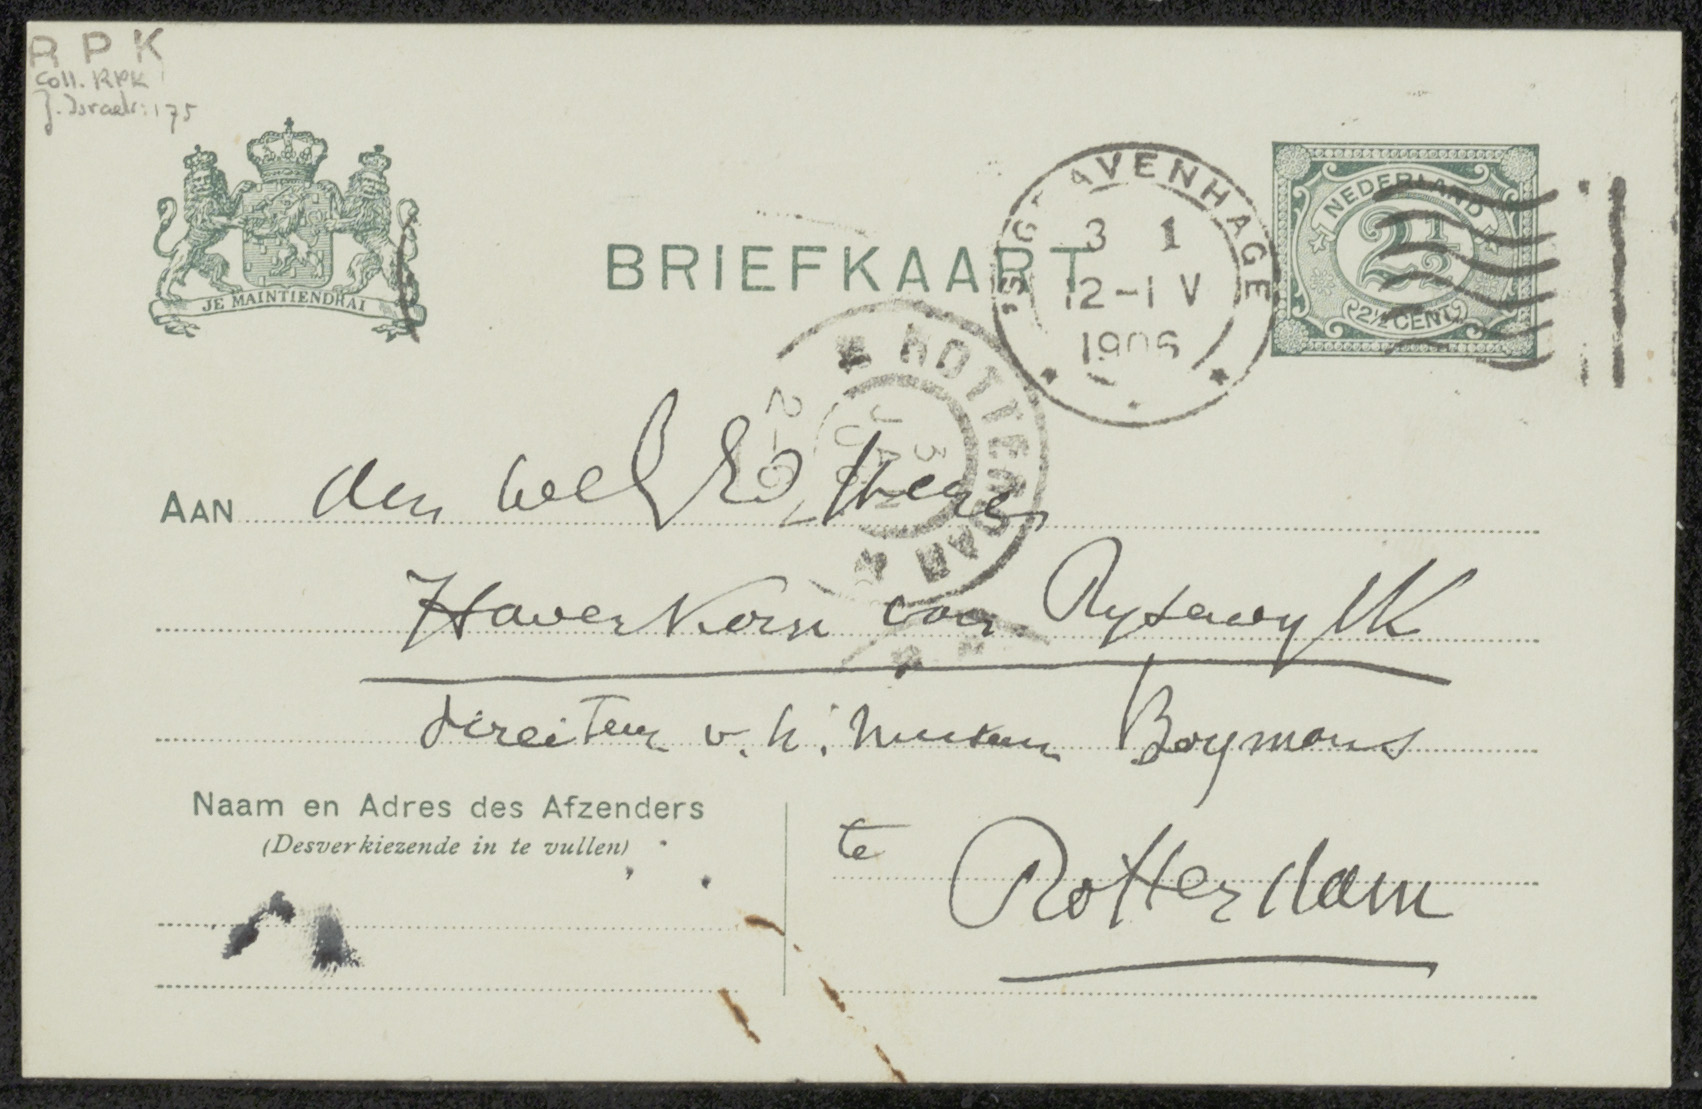 RPK
Coll. RPK
J. Israels: 175
JE MAINTIENDRAI
BRIEFKAART
'S GRAVENHAGE
3 1
12-1 V
1906
NEDERLAND
2½
2½ CENT
ROTTERDAM
3
JAN
AAN den WelEd Heer
Haverkorn van Rysewyk
directeur v. h. Museum Boymans
te
Rotterdam
Naam en Adres des Afzenders
(Desverkiezende in te vullen)